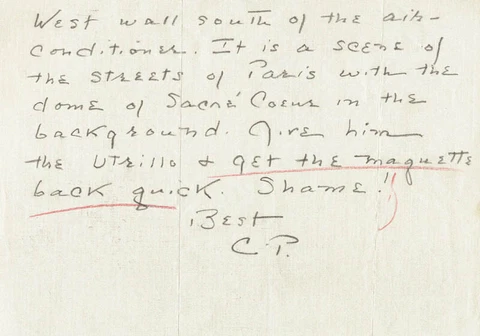 West wall south of the air-
conditioner. It is a scene of
the streets of Paris with the
dome of Sacré Coeur in the
background. Give him
the Utrillo & get the maquette
back quick. Shame!!
Best
C.P.